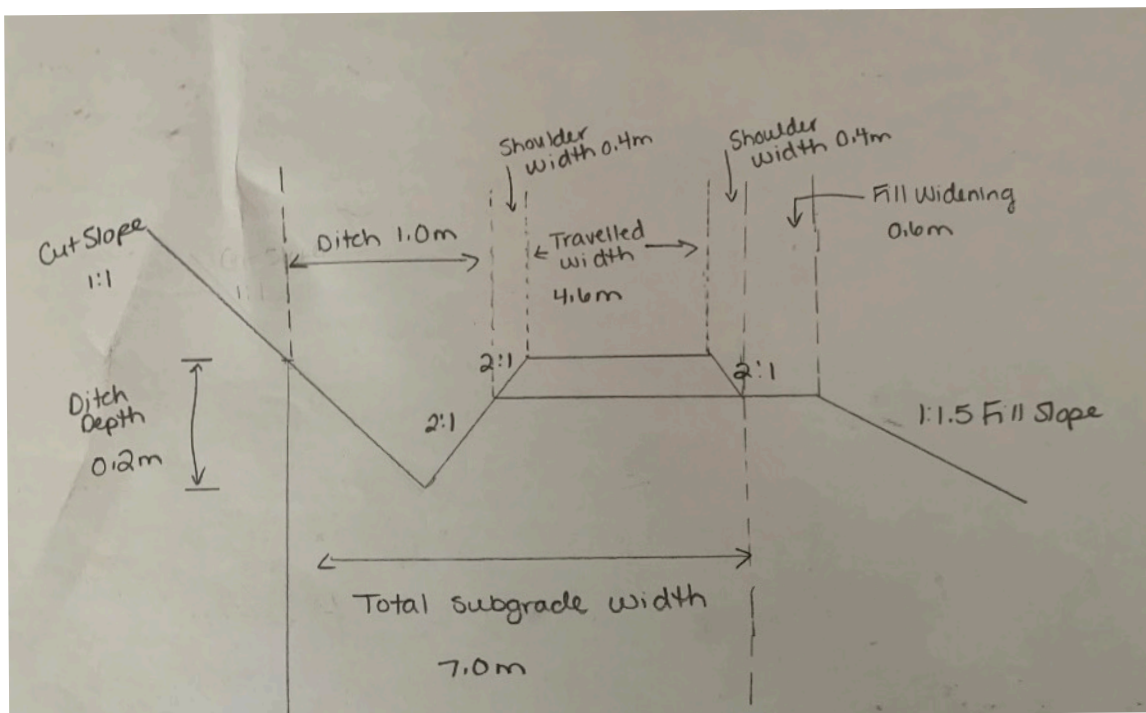 Shoulder
width 0.4m
Shoulder
width 0.4m
Fill Widening
0.6m
Cut Slope
1:1
Ditch 1.0m
Travelled
width
4.6m
2:1
2:1
2:1
Ditch
Depth
0.2m
1:1.5 Fill Slope
Total subgrade width
7.0m